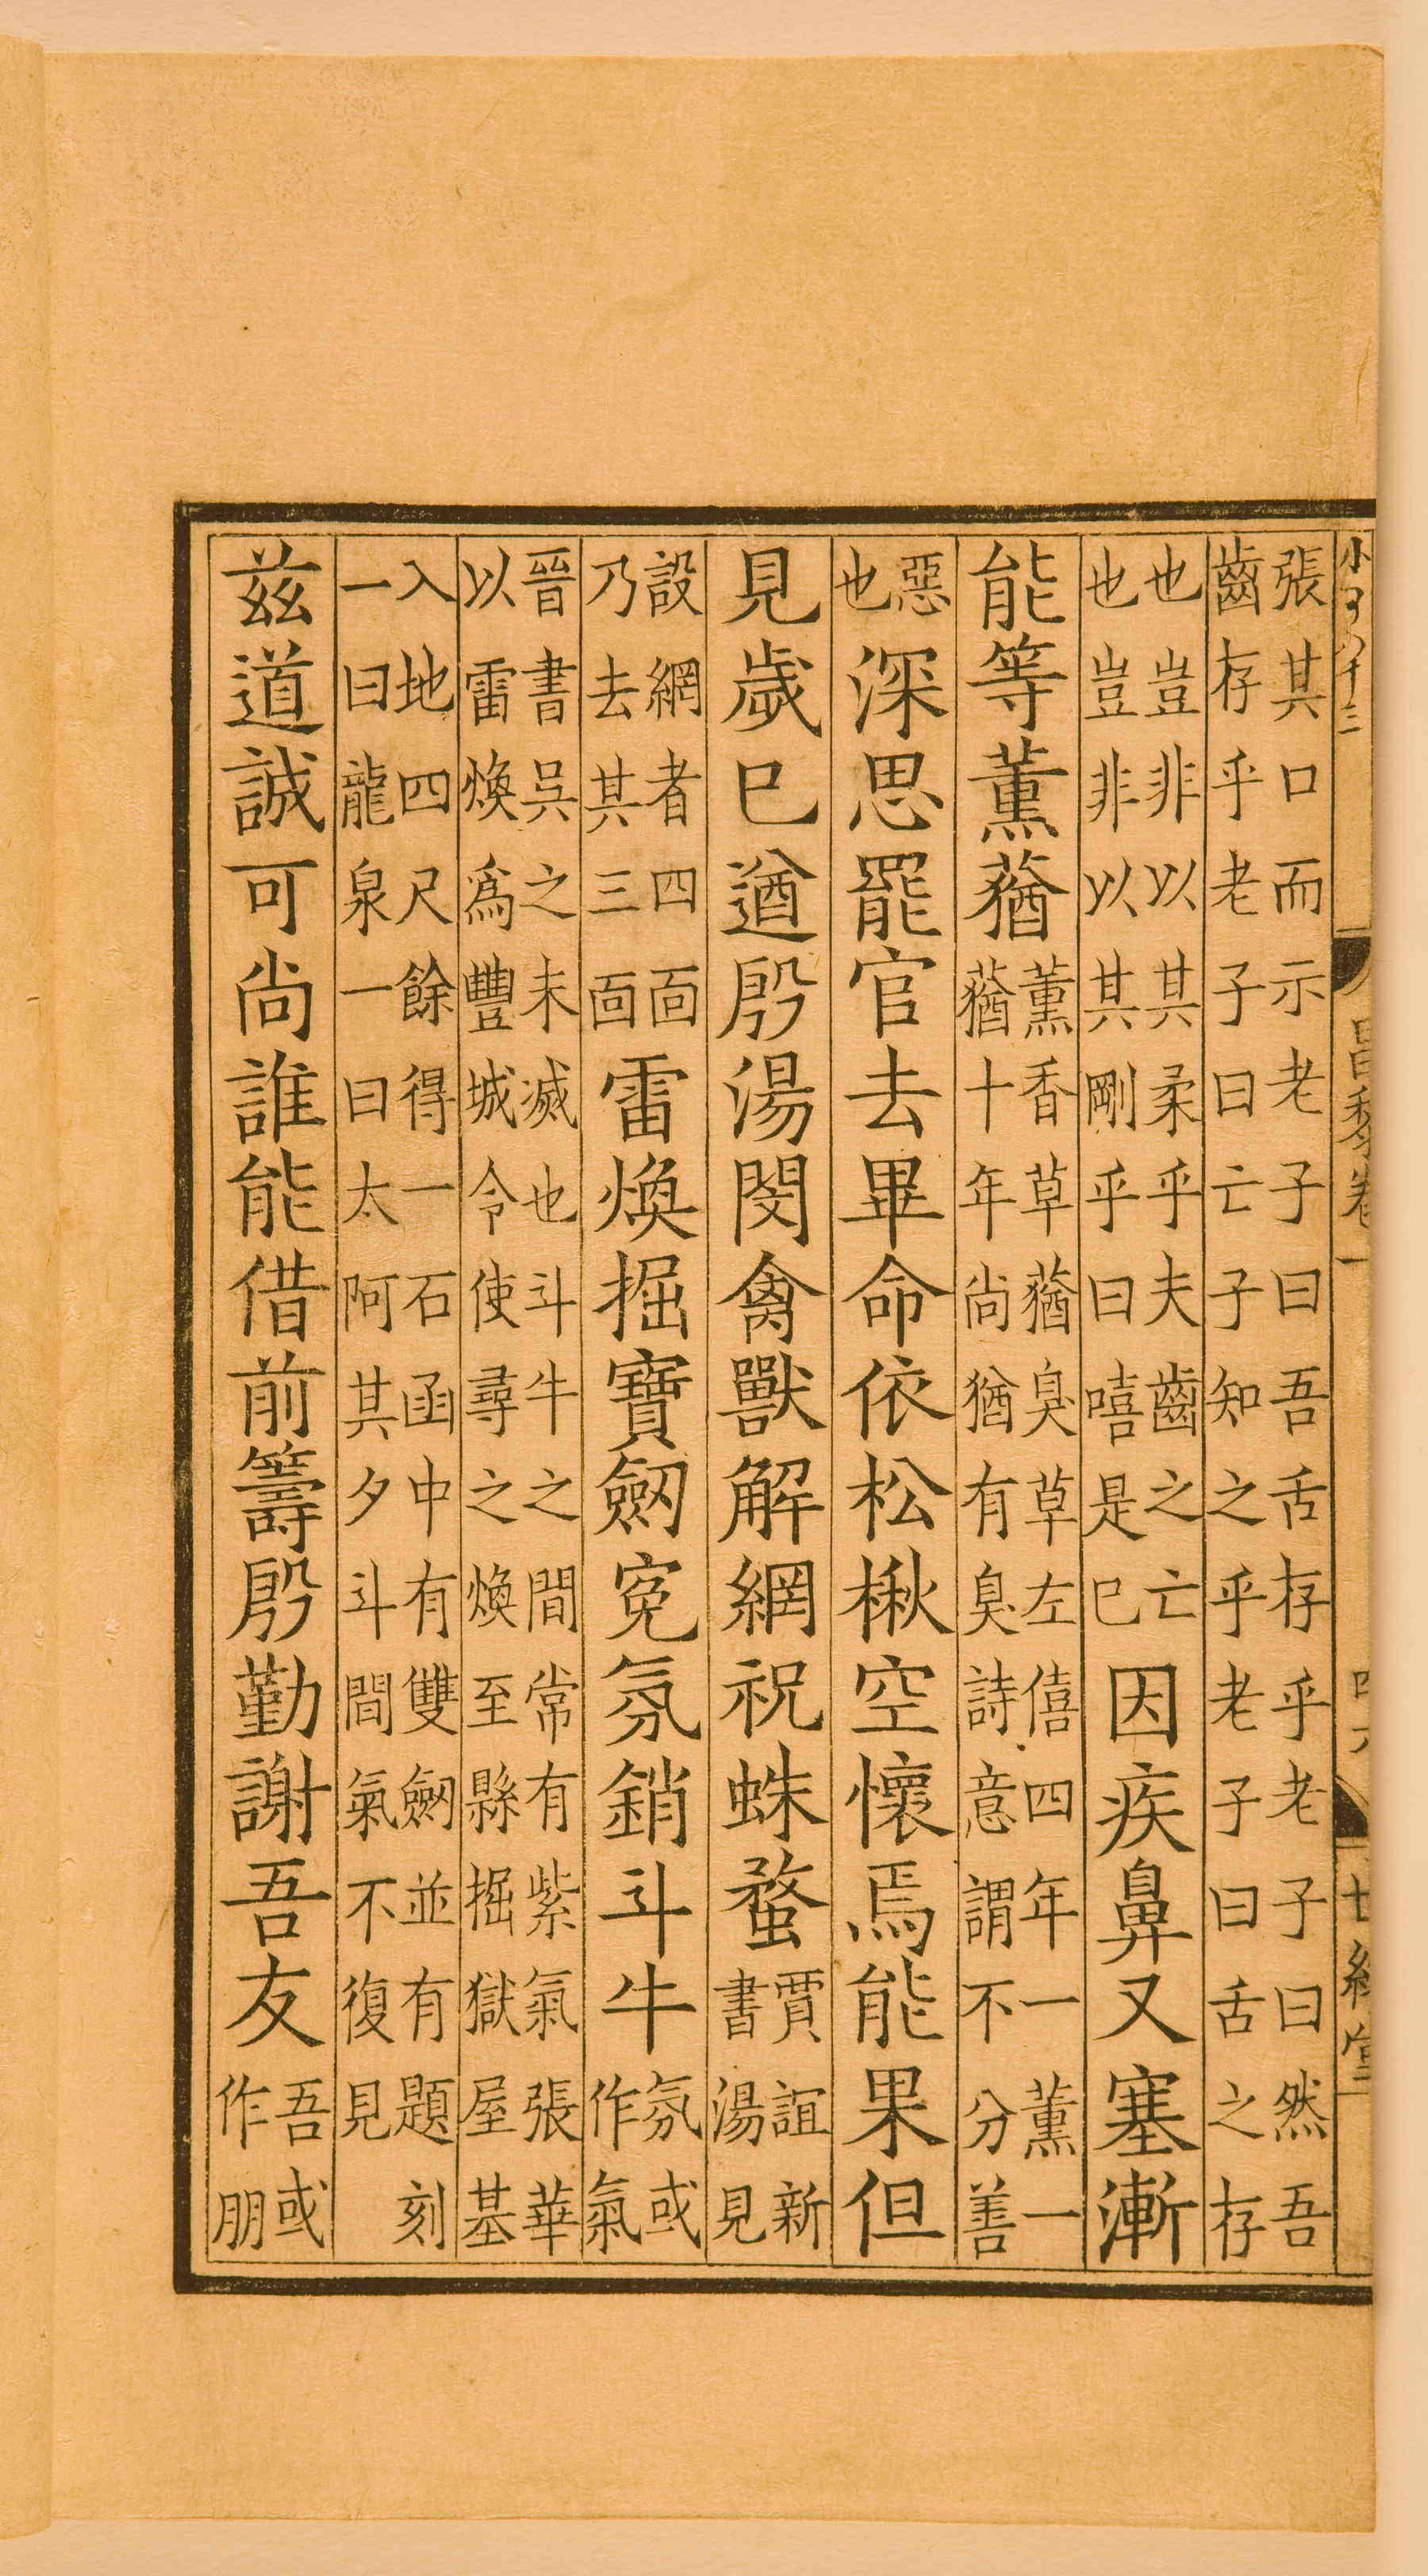 昌黎卷一
世綵堂
張其口而示老子曰吾舌存乎老子曰然吾
齒存乎老子曰亡子知之乎老子曰舌之存
也豈非以其柔乎夫齒之亡也豈非以其剛乎曰嘻是已因疾鼻又塞漸
能等薰蕕薰香草蕕臭草左僖四年一薰一蕕十年尚猶有臭詩意謂不分善
惡也深思罷官去畢命依松楸空懷焉能果但
見歲已遒殷湯閔禽獸解網祝蛛蝥賈誼新書湯見
設網者四面乃去其三面雷煥掘寶劒冤氛銷斗牛氛或作氣
晉書吳之未滅也斗牛之間常有紫氣張華
以雷煥爲豐城令使尋之煥至縣掘獄屋基
入地四尺餘得一石函中有雙劒並有題刻
一曰龍泉一曰太阿其夕斗間氣不復見
茲道誠可尚誰能借前籌殷勤謝吾友吾或作朋